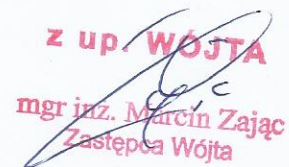 z up. WÓJTA
mgr inż. Marcin Zając
Zastępca Wójta